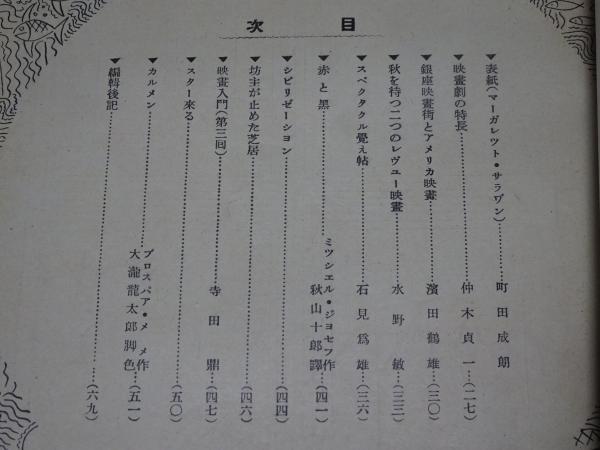 目次
▼表紙(マーガレツト・サラヴン)……町田成朗
▼映畫劇の特長……仲木貞一…(二七)
▼銀座映畫街とアメリカ映畫……濱田鶴雄…(三〇)
▼秋を待つ二つのレヴユー映畫……水野敏…(三三)
▼スペクタクル覺え帖……石見爲雄…(三六)
▼赤と黒……ミツシエル・ジヨセフ作
秋山十郎譯…(四一)
▼シビリゼーシヨン……(四四)
▼坊主が止めた芝居……(四六)
▼映畫入門(第三回)……寺田鼎…(四七)
▼スター來る……(五〇)
▼カルメン……プロスパア・メメ作
大瀧龍太郎脚色…(五一)
▼編輯後記……(六九)